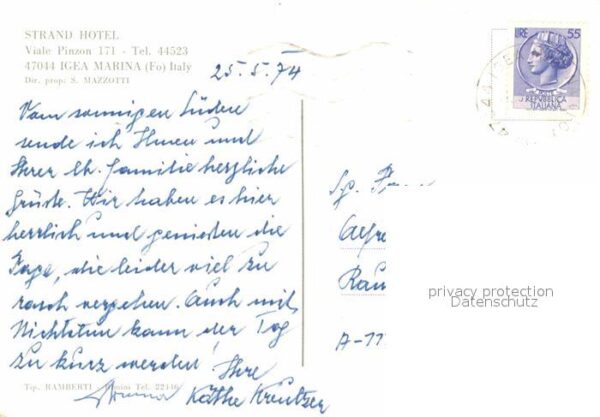 STRAND HOTEL
Viale Pinzon 171 - Tel. 44523
47044 IGEA MARINA (Fo) Italy
Dir. prop: S. MAZZOTTI
25.5.74
Vom sonnigen Süden
sende ich Ihnen und
Ihrer lb. Familie herzliche
Grüße. Wir haben es hier
herrlich und genießen die
Tage, die leider viel zu
rasch vergehen. Auch mit
Nichtstun kann der Tag
zu kurz werden! Ihre
Käthe Kreutzer
Tip. RAMBERTI - Rimini Tel. 22146
LIRE 55
REPVBBLICA
ITALIANA
Alfre
Rau
A-11
privacy protection
Datenschutz